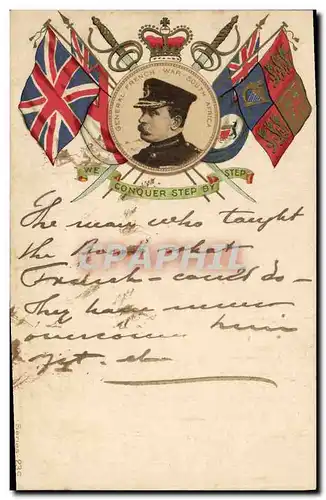 GENERAL FRENCH · WAR · SOUTH AFRICA
WE CONQUER STEP BY STEP
The man who taught
the what
French – could do –
They have never
overcome him
yet
CPRPHIL
Series 239